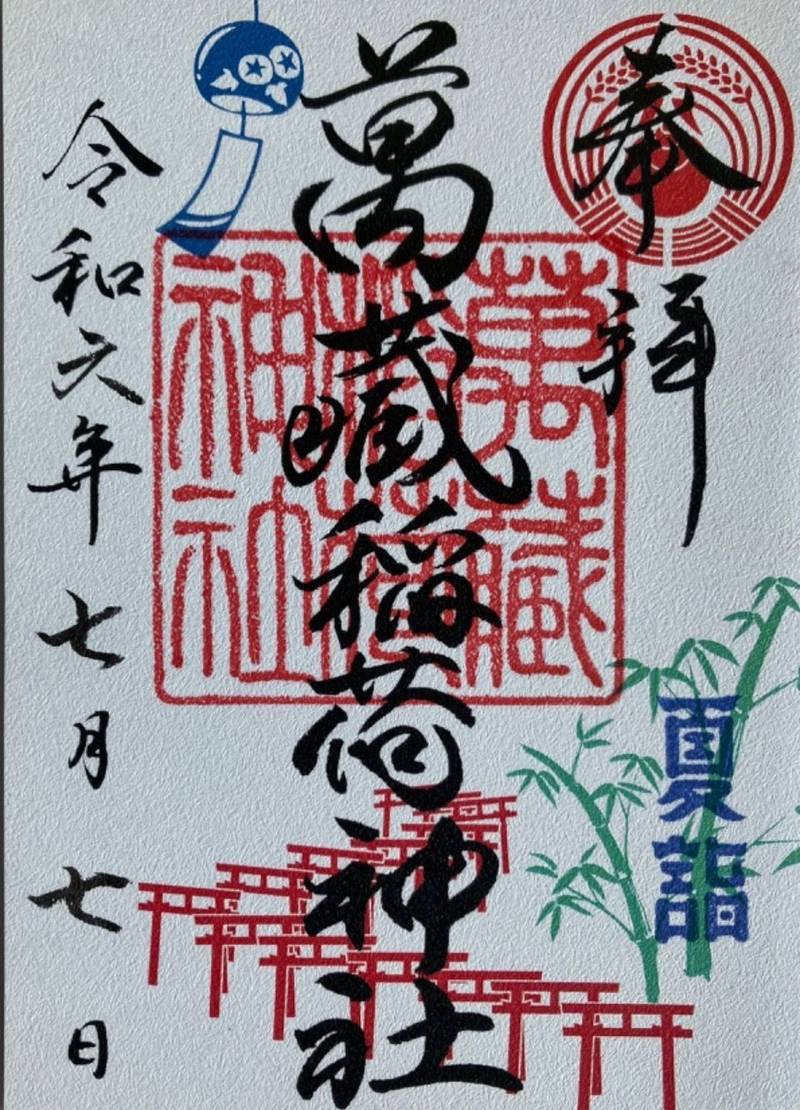 奉拝
夏詣
萬藏稲荷神社
萬藏
稲荷
神社
令和六年七月七日